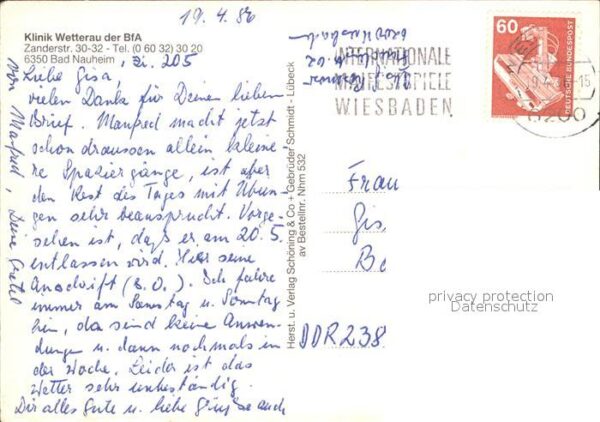 19.4.86
Klinik Wetterau der BfA
Zanderstr. 30-32 - Tel. (0 60 32) 30 20
6350 Bad Nauheim, Zi. 205
Liebe Gisa,
vielen Dank für Deinen lieben
Brief. Manfred macht jetzt
schon draussen allein kleine-
re Spaziergänge, ist aber
den Rest des Tages mit Übun-
gen sehr beansprucht. Vorge-
sehen ist, daß er am 20.5.
entlassen wird. Hier seine
Anschrift (s.o.). Ich fahre
immer am Samstag u. Sonntag
hin, da sind keine Anwen-
dungen u. dann nochmals in
der Woche. Leider ist das
Wetter sehr unbeständig.
Dir alles Gute u. liebe Grüße auch
von Manfred, Deine Gretel
Herst. u. Verlag Schöning & Co + Gebrüder Schmidt - Lübeck
av Bestellnr. Nhm 532
6200 Wiesbaden
INTERNATIONALE
MAIFESTSPIELE
WIESBADEN
60
DEUTSCHE BUNDESPOST
6200
Frau
Gis
Be
DDR 238
privacy protection
Datenschutz